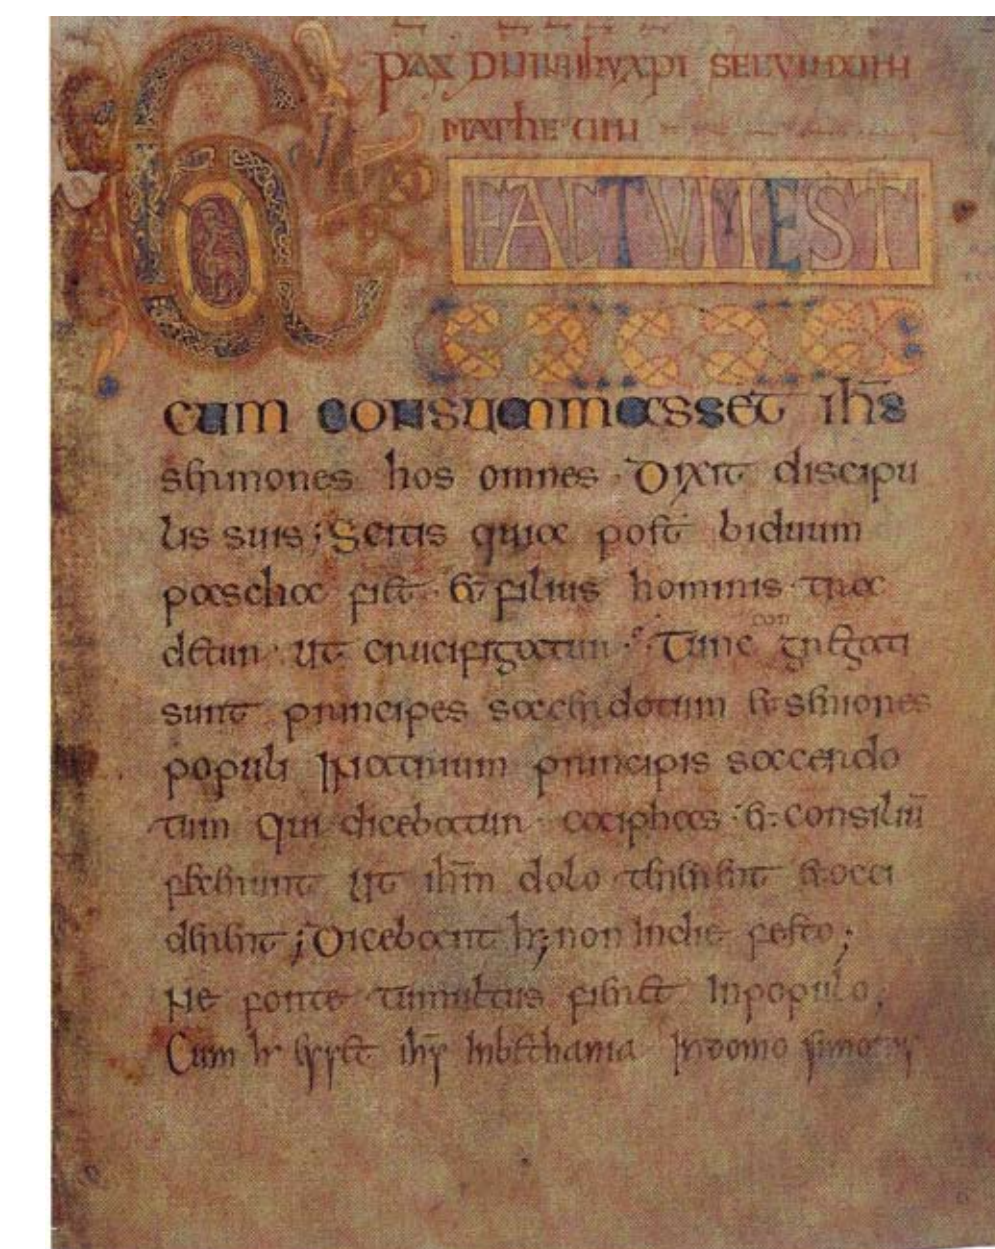 MATHEUM
ET FACTUM EST
cum consummasset ihs
sermones hos omnes · Dixit discipu
lis suis ; Scitis quia post biduum
pascha fiet · et filius hominis tra
detur · ut crucifigatur · Tunc congregati
sunt principes sacerdotum et seniores
populi In atrium principis sacerdo
tum qui dicebatur caiphas · et consiliū
fecerunt ut ihm dolo tenerent et occi
derent ; Dicebant non In die festo ;
Ne forte tumultus fieret In populo ,
Cum esset ihs In bethania In domo simonis